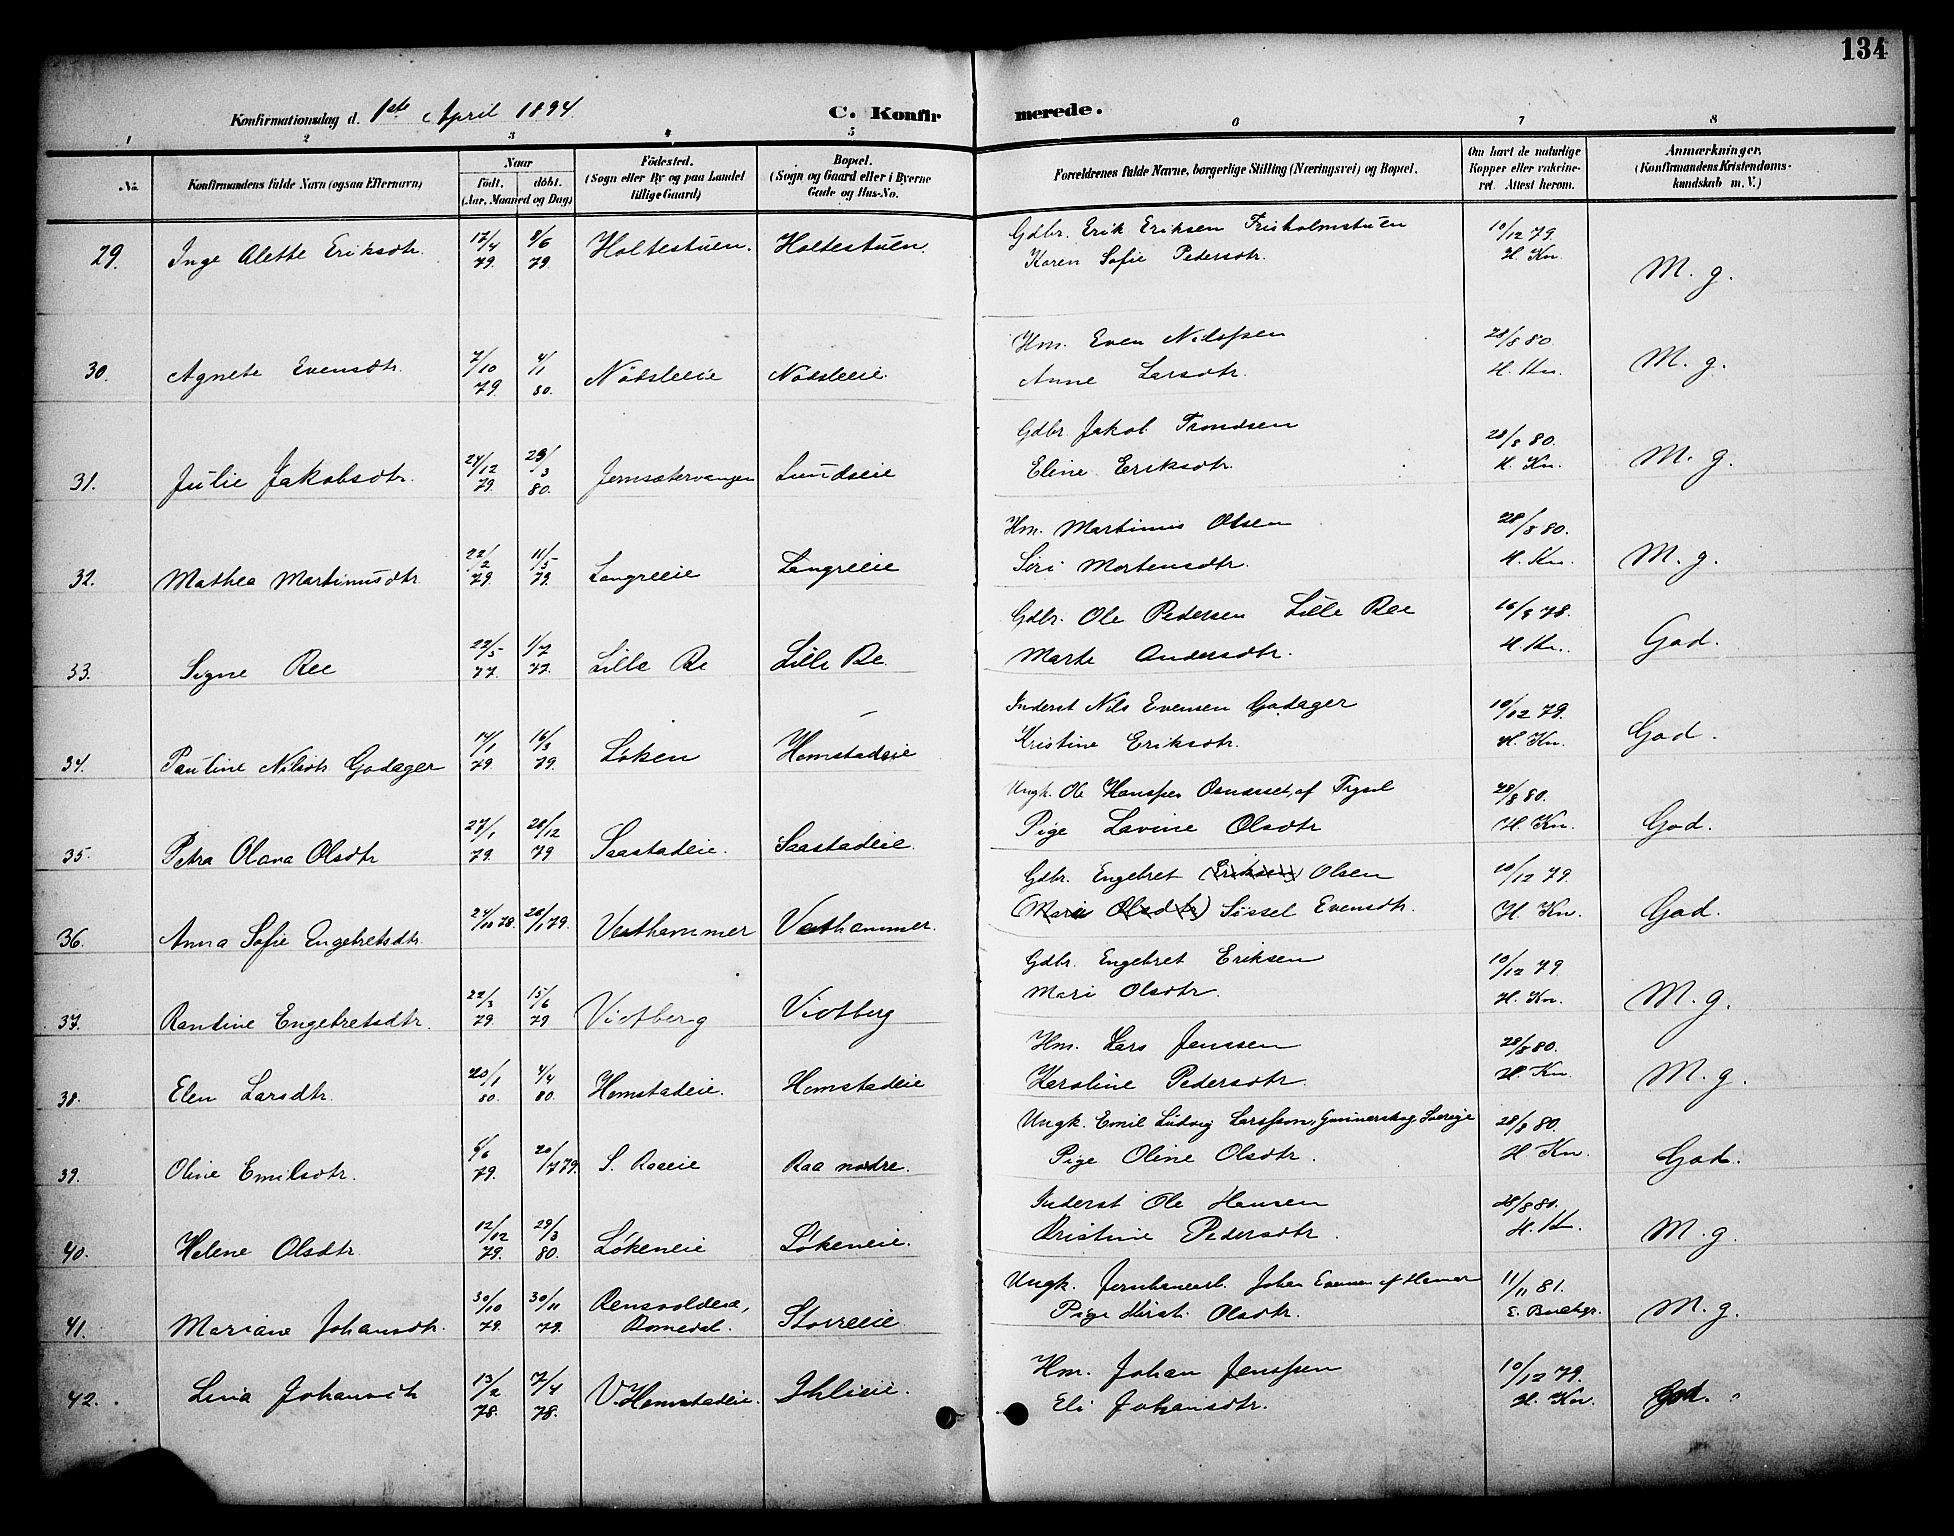 134
Konfirmationsdag d. 1ste April 1894
C. Konfirmerede.
1 2 3 4 5 6 7 8
No.
Konfirmandens fulde Navn (ogsaa Efternavn)
Naar
født. døbt.
(Aar, Maaned og Dag)
Fødested.
(Sogn eller By og paa Landet
tillige Gaard)
Bopæl.
(Sogn og Gaard eller i Byerne
Gade og Hus-No.
Forældrenes fulde Navne, borgerlige Stilling (Næringsvei) og Bopæl.
Om havt de naturlige
Kopper eller vakcine-
ret. Attest herom.
Anmærkninger.
(Konfirmandens Kristendoms-
kundskab m. V.)
29. Inge Alette Eriksdtr. 17/4 79. 8/6 79. Holtestuen. Holtestuen. Gdbr. Erik Eriksen Frisholmstuen 10/12 79.
Karen Sofie Pedersdtr. H. Kn. M. g.
30. Agnete Evensdtr. 7/10 79. 4/1 80. Nôtsleeie Nôtsleeie. Hm. Even Nilssen 28/8 80.
Anne Larsdtr. H. Kn. M. g.
31. Julie Jakobsdtr. 24/12 79. 29/3 80. Jernsætervangen Lundseie Gdbr. Jakob Trondsen 28/8 80.
Eline Eriksdtr. H. Kn. M. g.
32. Mathea Martinusdtr. 22/2 79. 11/5 79. Langreeie Langreeie Hm. Martinus Olsen 28/8 80.
Siri Mortensdtr. H. Kn. M. g.
33. Signe Ree 22/5 77. 1/7 77. Lille Re Lille Re. Gdbr. Ole Pedersen Lille Ree 16/9 78.
Marte Andersdtr. H. Kn. God.
34. Pauline Nilsdtr. Godager 14/1 79. 16/3 79. Løken Homstadeie Inderst Nils Evensen Godager 10/12 79.
Kristine Eriksdtr. H. Kn. God.
35. Petra Olava Olsdtr 27/1 79. 28/12 79 Saastadeie. Saastadeie. Ungk. Ole Hanssen af Trysil 28/8 80.
Pige Lavine Olsdtr H. Kn. God.
36. Anna Sofie Engebretsdtr. 24/10 78. 26/1 79. Vesthammer Vesthammer. Gdbr. Engebret (Eriksen) Olsen 10/12 79.
(Mari Olsdtr) Sissel Evensdtr. H. Kn. God.
37. Rantine Engebretsdtr. 22/3 79. 15/6 79 Viotberg Viotberg Gdbr. Engebret Eriksen 10/12 79
Mari Olsdtr. H. Kn. M. g.
38. Elen Larsdtr. 20/1 80. 4/4 80. Homstadeie. Homstadeie Hm. Lars Jenssen 28/8 80.
Karoline Pedersdtr. H. Kn. M. g.
39. Oline Emilsdtr. 6/6 79. 20/7 79. S. Raaeie Raa nordre. Ungk. Emil Ludvig Larssen, Gunnerskog Sverige 28/8 80.
Pige Oline Olsdtr. H. Kn. God.
40. Helene Olsdtr 12/12 79. 29/3 80. Løkeneie Løkeneie. Inderst Ole Hansen 28/8 80.
Kristine Pedersdtr. H. Kn. M. g.
41. Mariane Johansdtr. 30/10 79. 30/11 79. Rensvoldeie, Romedal. Storreeie Ungk. Jernbanearb. Johan Evensen af Hamar 11/11 81.
Pige Kirsti Olsdtr. M. g.
42. Lina Johansdtr 13/2 78. 7/4 78. V. Homstadeie. Ihlieie. Hm. Johan Jenssen 10/12 79.
Eli Johansdtr. H. Kn. God.